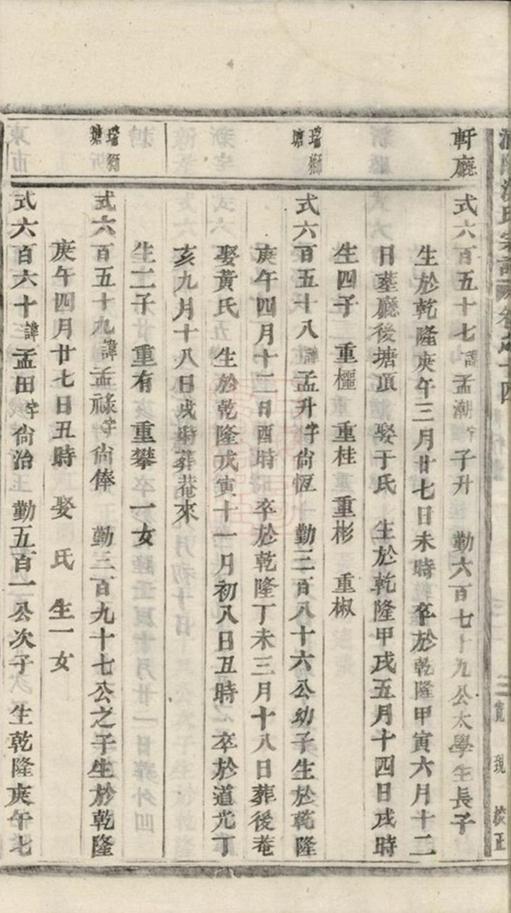 氏宗譜 卷之十四
三 寬現 校正
軒廳
式六百五十七諱孟潮字子升 勤六百七十九公太學生長子
生於乾隆庚午三月廿七日未時 卒於乾隆甲寅六月十二
日塟廳後塘頂 娶于氏 生於乾隆甲戌五月十四日戌時
生四子 重欏 重桂 重彬 重椒
瑞獅塘
式六百五十八諱孟升字尙恆 勤二百八十六公幼子生於乾隆
庚午四月十二日酉時 卒於乾隆丁未三月十八日葬後菴
娶黃氏 生於乾隆戊寅十一月初八日丑時 卒於道光丁
亥九月十八日戌時葬菴來
生二子 重有 重攀 一女
瑞獅塘
式六百五十九諱孟祿字尙俸 勤三百九十七公之子生於乾隆
庚午四月廿七日丑時 娶 氏 生一女
式六百六十諱孟田字尙治 勤五百一公次子 生乾隆庚午七